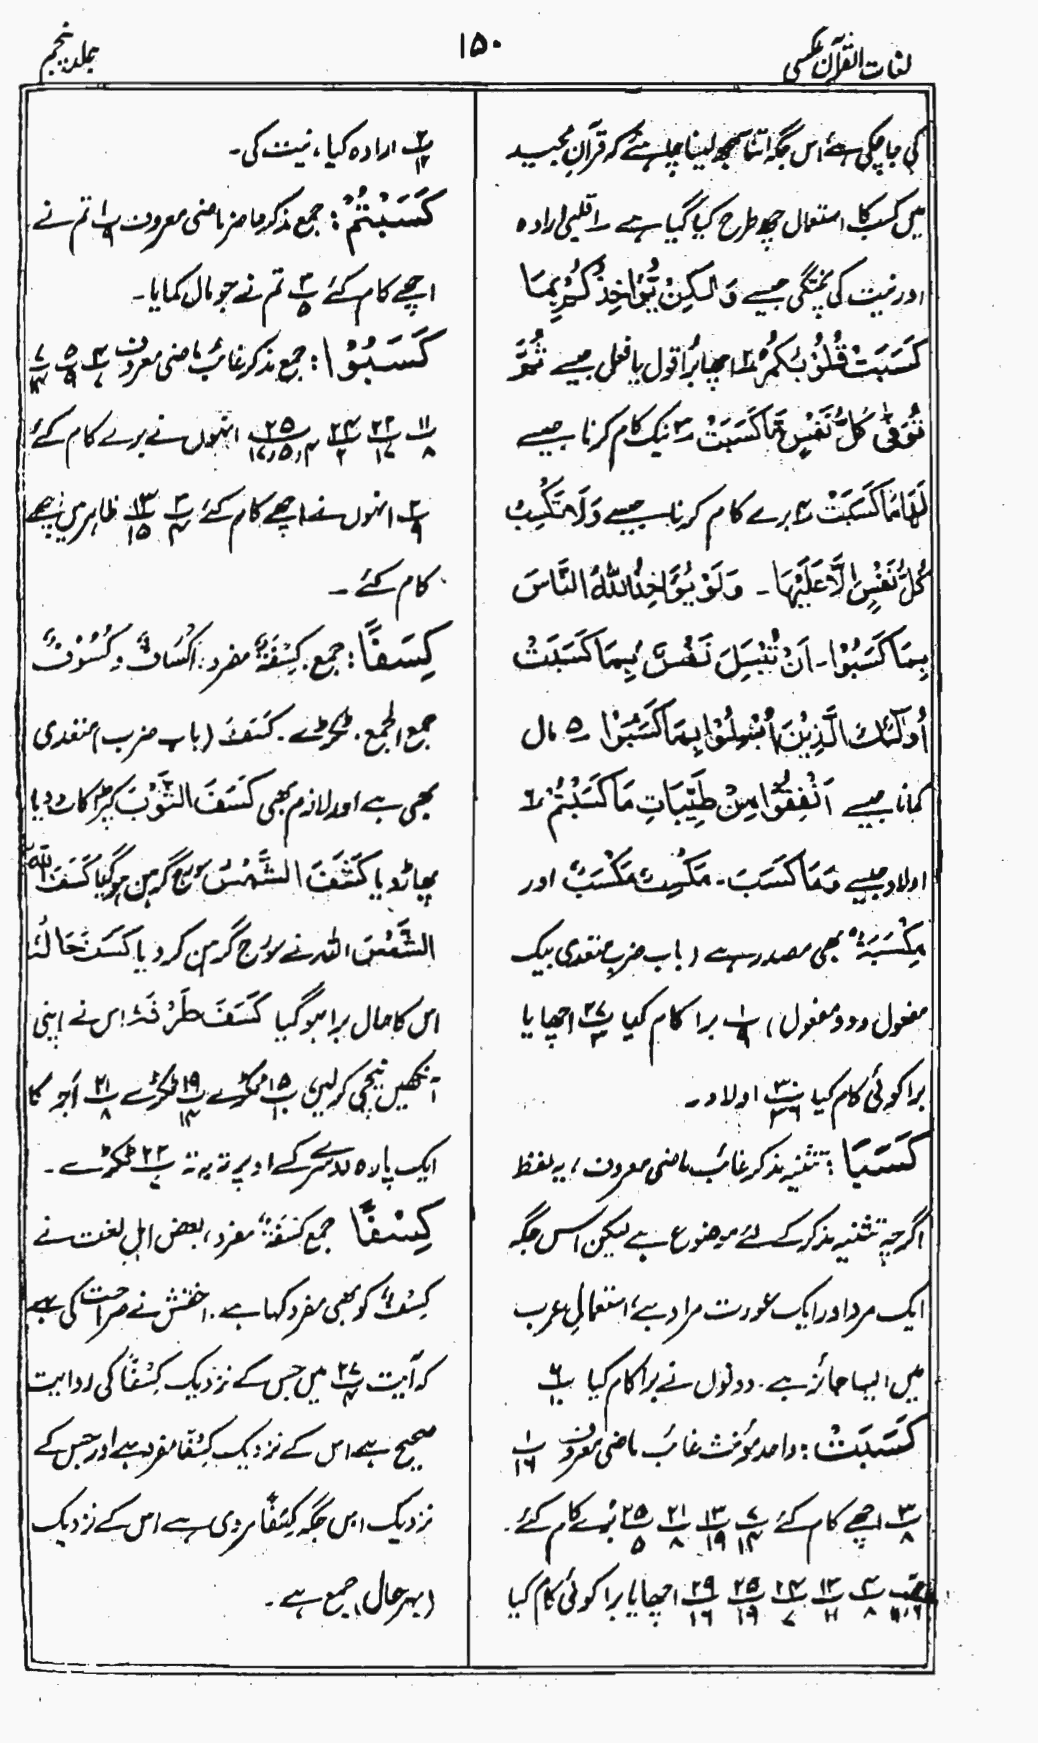 لغات القرآن عکسی
۱۵۰
جلد پنجم
کی جا چکی ہے اس جگہ اتنا سمجھ لینا چاہئے کہ قرآن مجید
میں کسب کا استعمال چھ طرح کیا گیا ہے ۱ قلبی ارادہ
اور نیت کی پختگی جیسے وَلٰکِنْ یُّؤَاخِذُکُمْ بِمَا
کَسَبَتْ قُلُوْبُکُمْ ۲ اچھا بُرا قول یا فعل جیسے ثُمَّ
تُوَفّٰی کُلُّ نَفْسٍ مَّا کَسَبَتْ ۳ نیک کام کرنا جیسے
لَهَا مَا کَسَبَتْ ۴ برے کام کرنا جیسے وَلَا تَکْسِبُ
کُلُّ نَفْسٍ اِلَّا عَلَیْهَا۔ وَلَوْ یُؤَاخِذُ اللّٰهُ النَّاسَ
بِمَا کَسَبُوْا۔ اَنْ تُبْسَلَ نَفْسٌ بِمَا کَسَبَتْ
اُولٰٓئِکَ الَّذِیْنَ اُبْسِلُوْا بِمَا کَسَبُوْا ۵ مال
کمانا جیسے اَنْفِقُوْا مِنْ طَیِّبَاتِ مَا کَسَبْتُمْ ۶
اولاد جیسے وَمَا کَسَبَ۔ مَکْسِبٌ مَکْسَبٌ اور
مَکْسِبَةٌ بھی مصدر ہے (باب ضرب متعدی بیک
مفعول و دو مفعول) پ۱/۹ برا کام کیا پ۲۷/۳ اچھا یا
برا کوئی کام کیا پ۳۰/۳۶ اولاد۔
کَسَبَا: تثنیہ مذکر غائب ماضی معروف، یہ لفظ
اگرچہ تثنیہ مذکر کے لئے موضوع ہے لیکن اس جگہ
ایک مرد اور ایک عورت مراد ہے، استعمالِ عرب
میں ایسا جائز ہے۔ دونوں نے برا کام کیا پ۶/۱۰
کَسَبَتْ: واحد مؤنث غائب ماضی معروف پ۱/۱۶
پ۳/۸ اچھے کام کئے پ۷/۱۴ پ۱۳/۱۹ پ۲۱/۸ پ۲۵/۵ بُرے کام کئے۔
پ۴/۸ پ۱۳/۱۱ پ۲۴/۷ پ۲۵/۱۹ پ۲۹/۱۶ اچھا یا برا کوئی کام کیا
پ۲/۱۲ ارادہ کیا، نیت کی۔
کَسَبْتُمْ: جمع مذکر حاضر ماضی معروف پ۱/۹ تم نے
اچھے کام کئے پ۳/۵ تم نے جو مال کمایا۔
کَسَبُوْا: جمع مذکر غائب ماضی معروف پ۴/۷ پ۵/۹ پ۷/۱۴
پ۱۱/۸ پ۲۲/۱۷ پ۲۴/۲ پ۲۵/۴،۵،۱۷ انہوں نے برے کام کئے
پ۲/۹ انہوں نے اچھے کام کئے پ۳/۴ پ۱۳/۱۵ ظاہر میں اچھے
کام کئے۔
کِسَفًا: جمع، کِسْفَةٌ مفرد، اَکْسَافٌ وکُسُوْفٌ
جمع الجمع۔ ٹکڑے۔ کَسَفَ (باب ضرب) متعدی
بھی ہے اور لازم بھی کَسَفَ الثَّوْبَ کپڑا کاٹ دیا
پھاڑ دیا کَسَفَ الشَّمْسُ سورج گرہن ہو گیا کَسَفَ اللّٰهُ
الشَّمْسَ اللہ نے سورج گرہن کر دیا کَسَفَ حَالُهٗ
اس کا حال برا ہو گیا کَسَفَ طَرْفَهٗ اس نے اپنی
آنکھیں نیچی کر لیں، پ۱۵/۱۰ ٹکڑے پ۱۹/۱۴ ٹکڑے پ۲۱/۸ ابر کا
ایک پارہ دوسرے کے اوپر تہ بہ تہ پ۲۲/۷ ٹکڑے۔
کِسْفًا جمع کِسْفَةٌ مفرد، بعض اہل لغت نے
کِسْفٌ کو بھی مفرد کہا ہے۔ اخفش نے صراحت کی ہے
کہ آیت پ۲۷/۴ میں جس کے نزدیک کِسْفًا کی روایت
صحیح ہے اس کے نزدیک کِسْفًا مفرد ہے اور جس کے
نزدیک اس جگہ کِسَفًا مروی ہے اس کے نزدیک
(بہر حال) جمع ہے۔